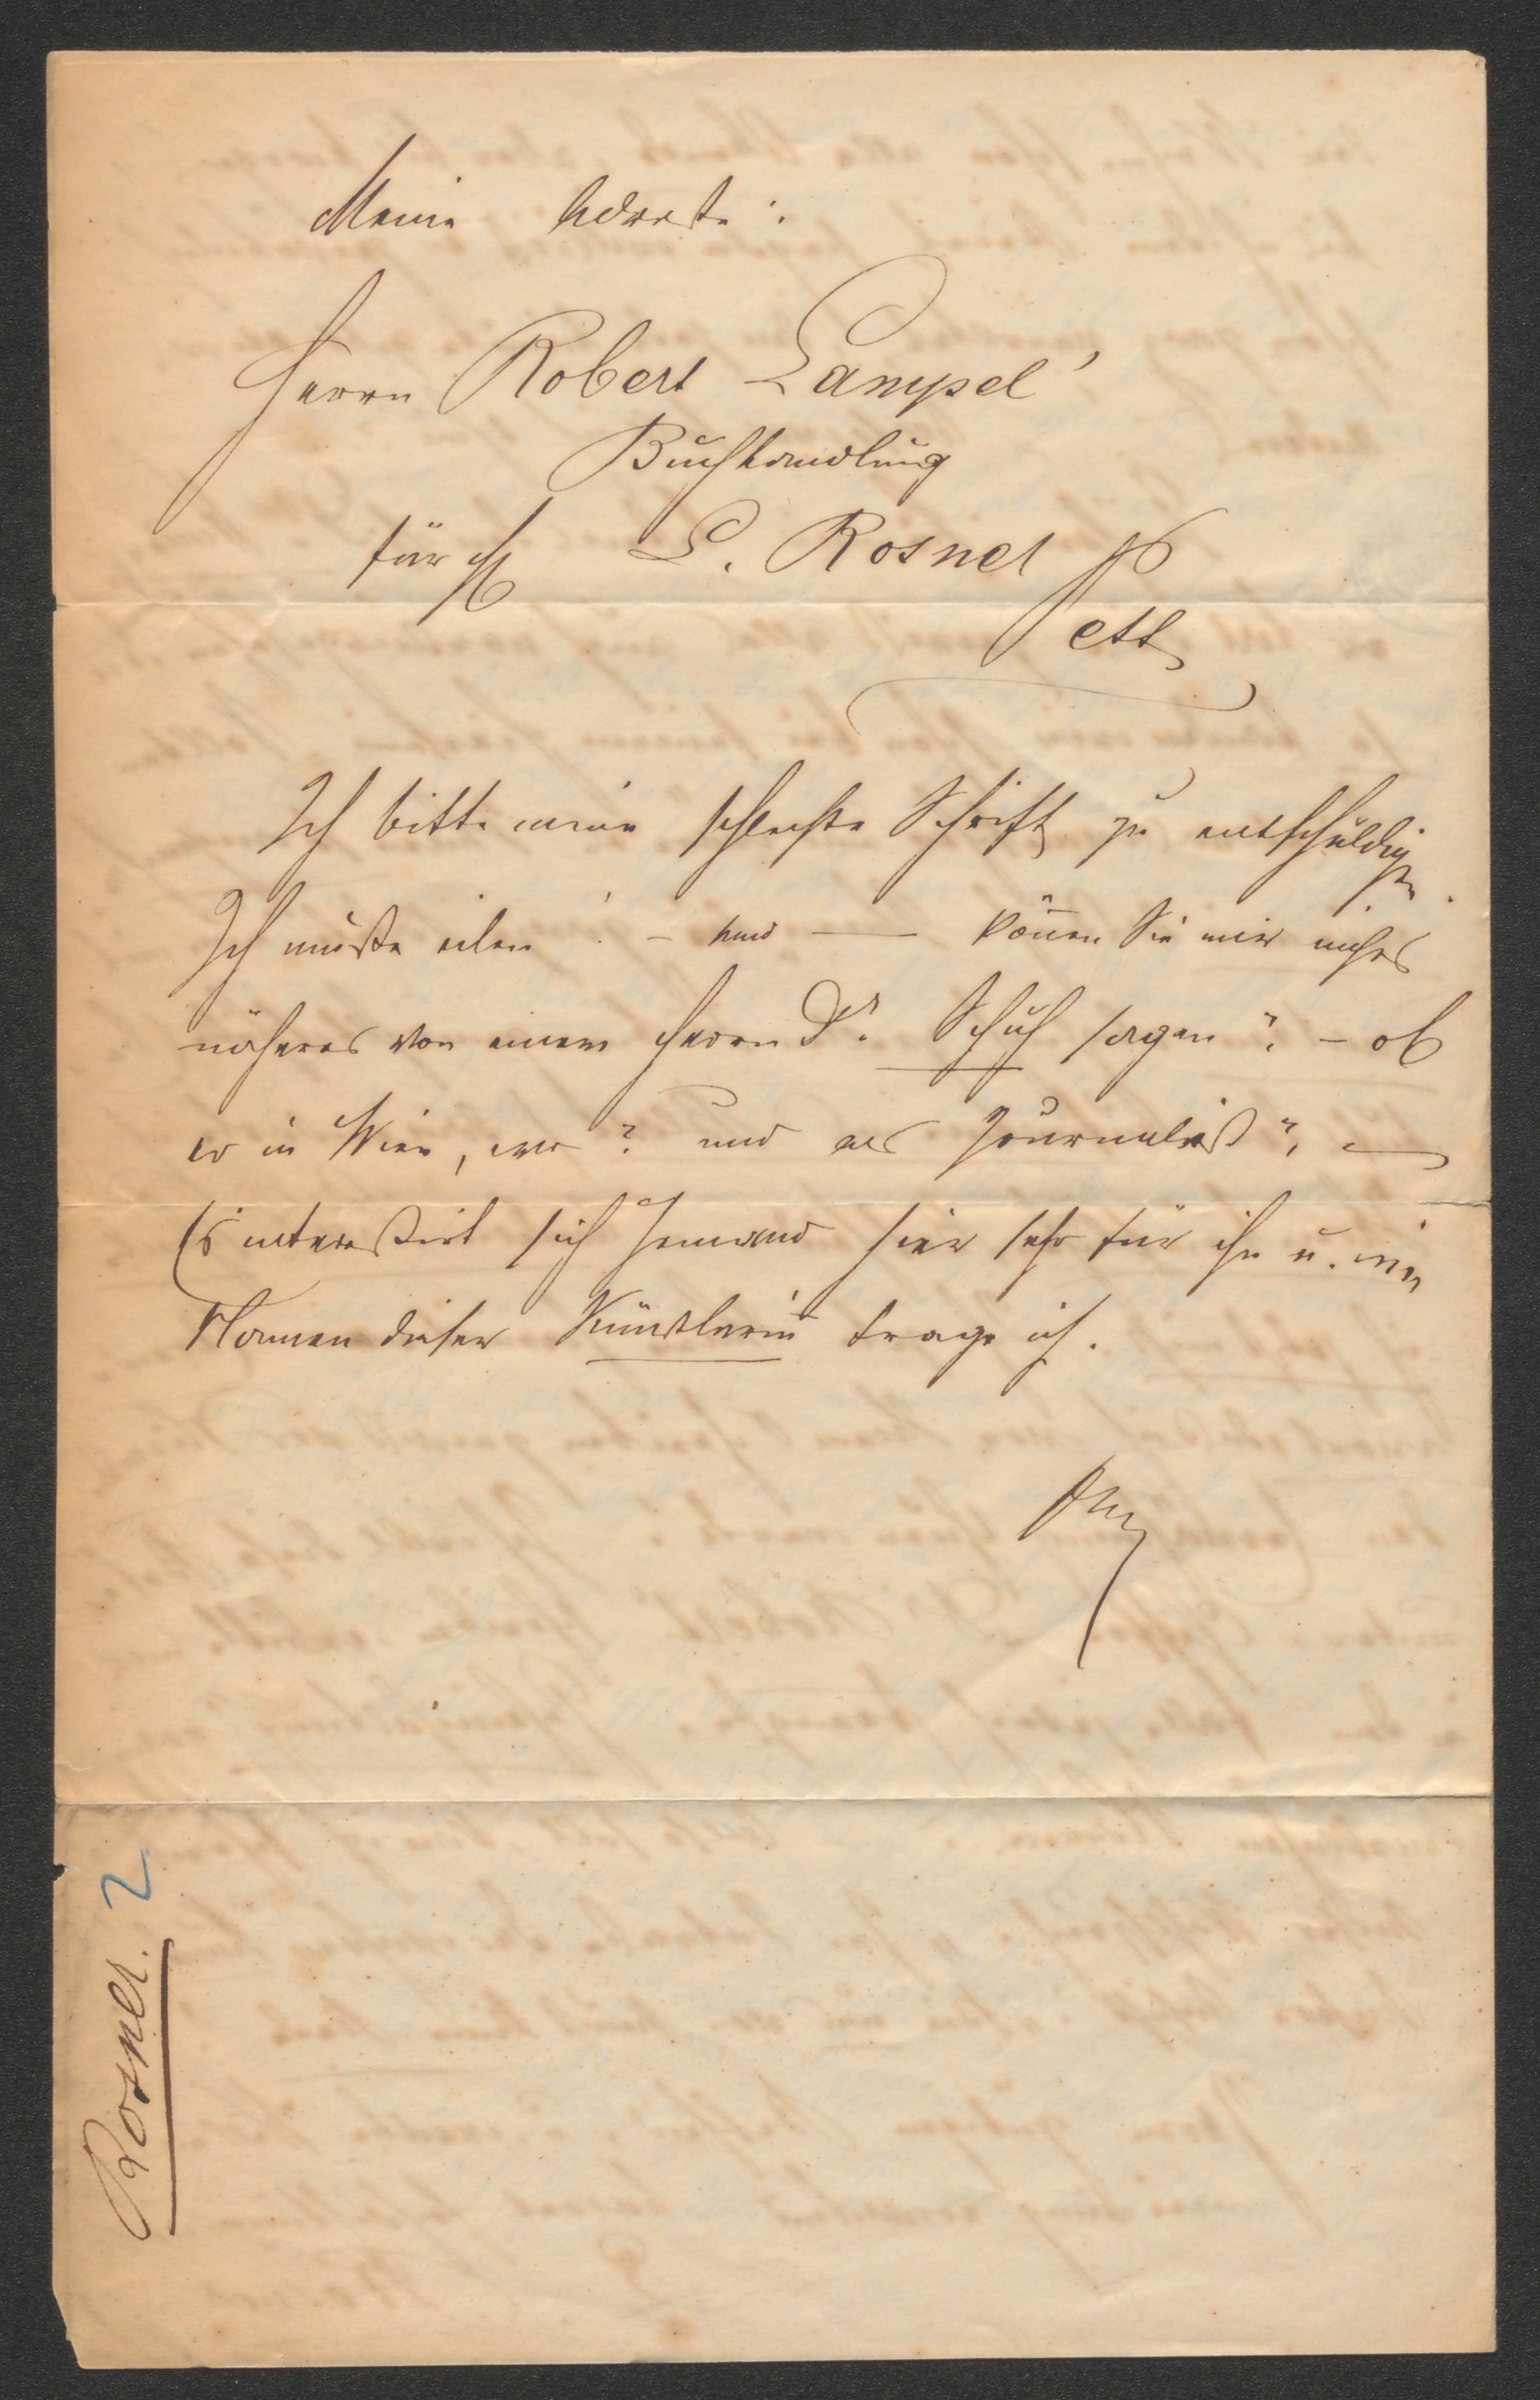 Meine Adresse:
Herrn Robert Lampel'
Buchhandlung
für H L. Rosner
Pest
Ich bitte meine schlechte Schrift zu entschuldigen.
Ich mußte eilen! – und — können Sie mir nichts
näheres von einem Herrn Dr. Schuh sagen? – ob
er in Wien, wo? und als Journalist? –
Es interessirt sich Jemand hier sehr für ihn u.
Namen dieser Künstlerin trage ich.
Rosner. 2